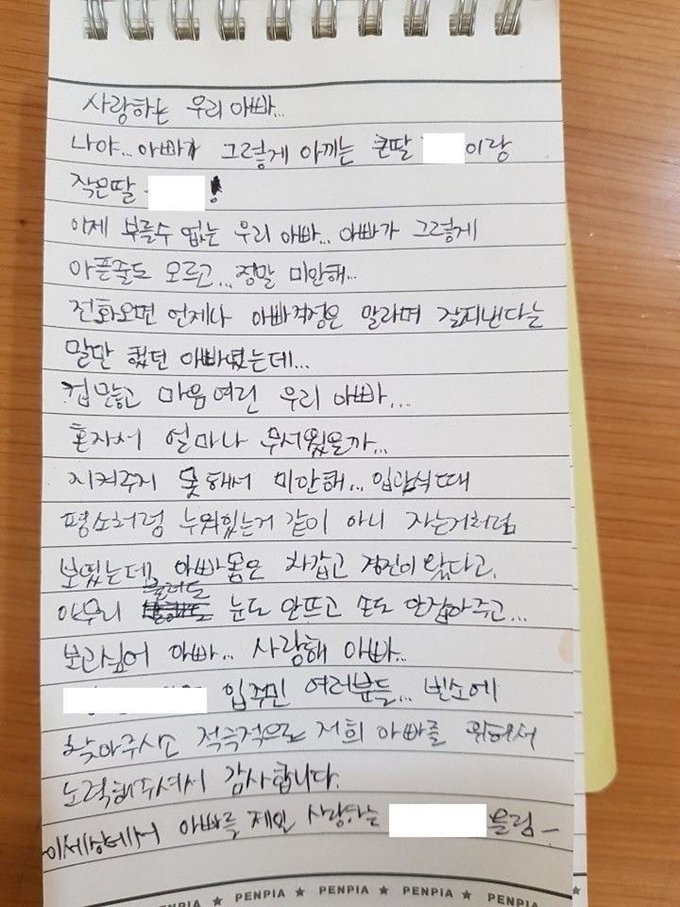 사랑하는 우리 아빠...
나야... 아빠가 그렇게 아끼는 큰딸 이랑
작은딸 !
이제 부를수 없는 우리 아빠... 아빠가 그렇게
아픈줄도 모르고... 정말 미안해...
전화오면 언제나 아빠걱정은 말라며 잘지낸다는
말만 했던 아빠였는데...
겁많고 마음여린 우리 아빠...
혼자서 얼마나 무서웠을까...
지켜주지 못해서 미안해... 입관식때
평소처럼 누워있는거 같이 아니 자는거처럼
보였는데 아빠몸은 차갑고 경직이 왔다고,
아무리 불러도 눈도 안뜨고 손도 안잡아주고...
보고싶어 아빠... 사랑해 아빠...
입주민 여러분들... 빈소에
찾아주시고 적극적으로 저희 아빠를 위해서
노력해주셔서 감사합니다.
이세상에서 아빠를 제일 사랑하는 올림-
PENPIA ★ PENPIA ★ PENPIA ★ PENPIA ★ PENPIA